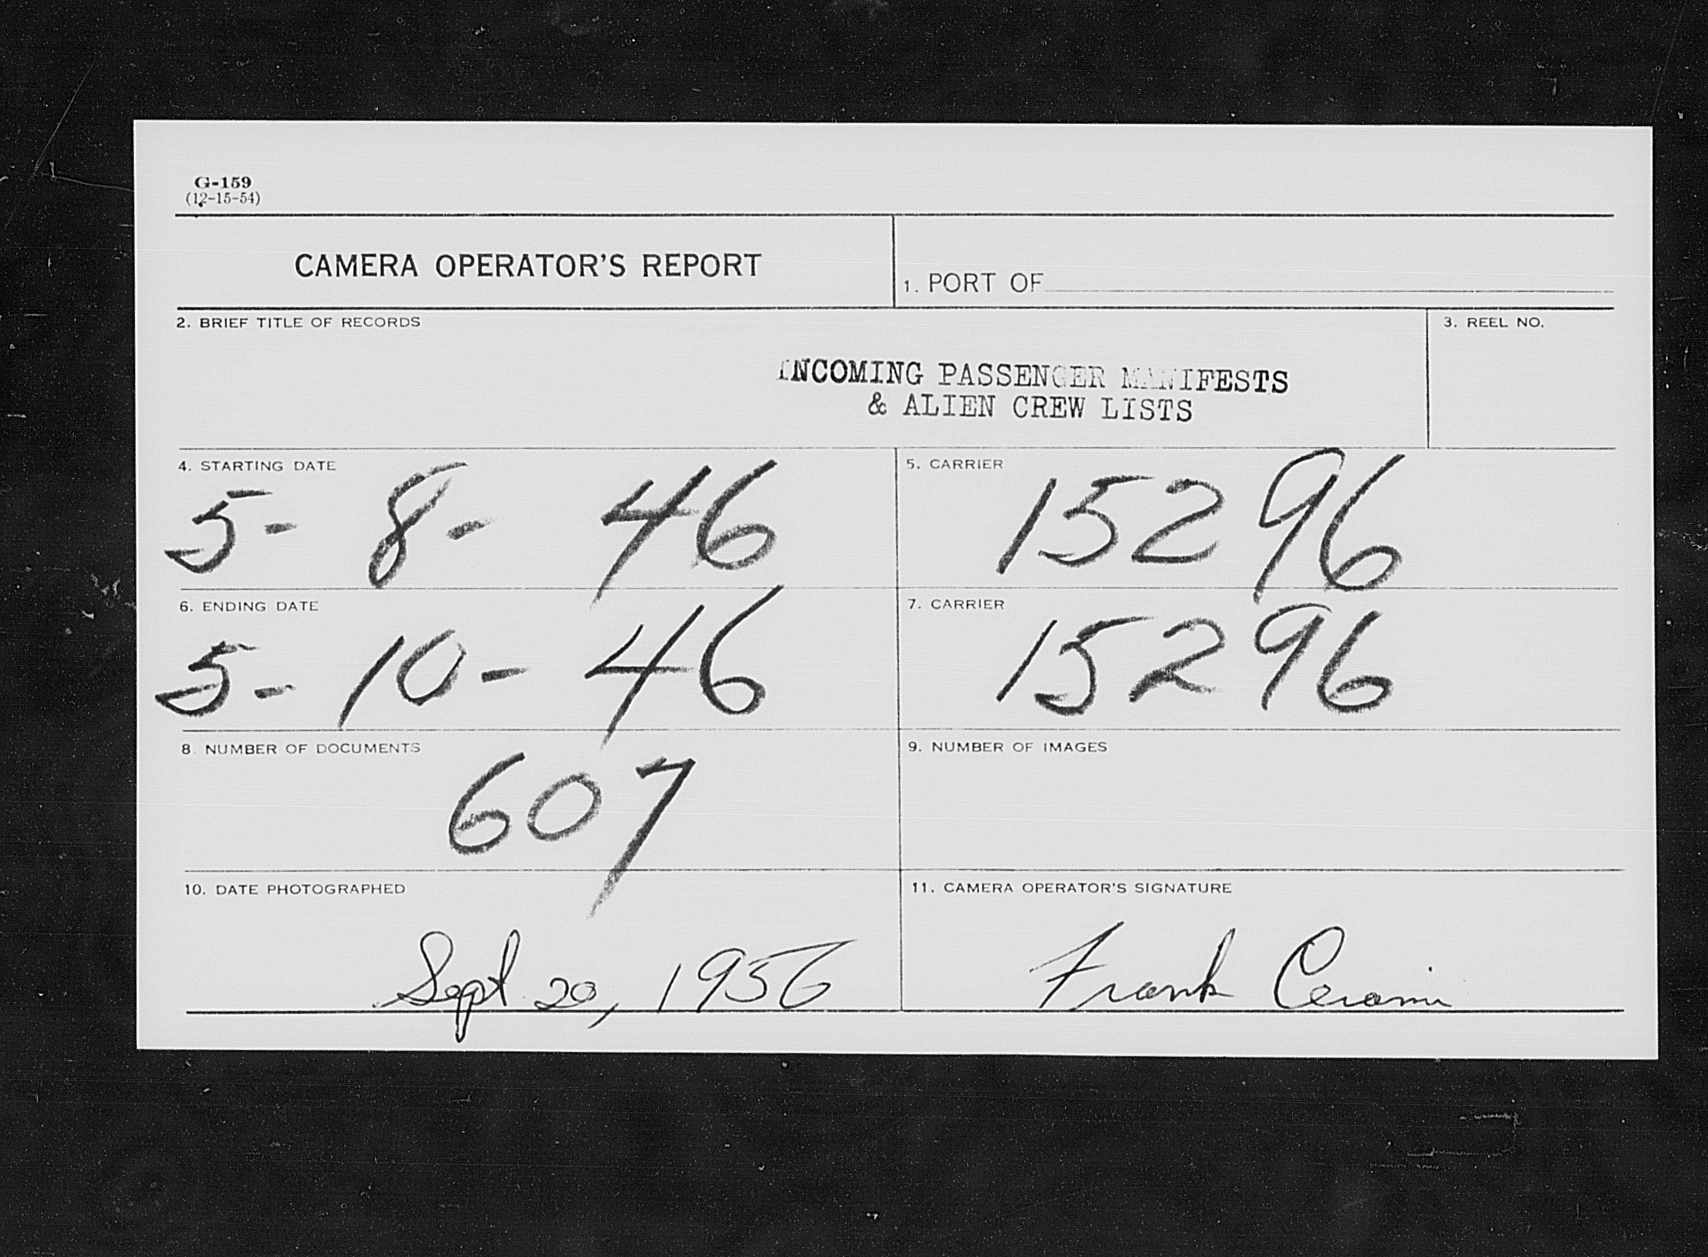 G-159
(12-15-54)
CAMERA OPERATOR'S REPORT
1. PORT OF
2. BRIEF TITLE OF RECORDS
3. REEL NO.
INCOMING PASSENGER MANIFESTS
& ALIEN CREW LISTS
4. STARTING DATE
5-8-46
5. CARRIER
15296
6. ENDING DATE
5-10-46
7. CARRIER
15296
8 NUMBER OF DOCUMENTS
607
9. NUMBER OF IMAGES
10. DATE PHOTOGRAPHED
Sept 20, 1956
11. CAMERA OPERATOR'S SIGNATURE
Frank Cerami